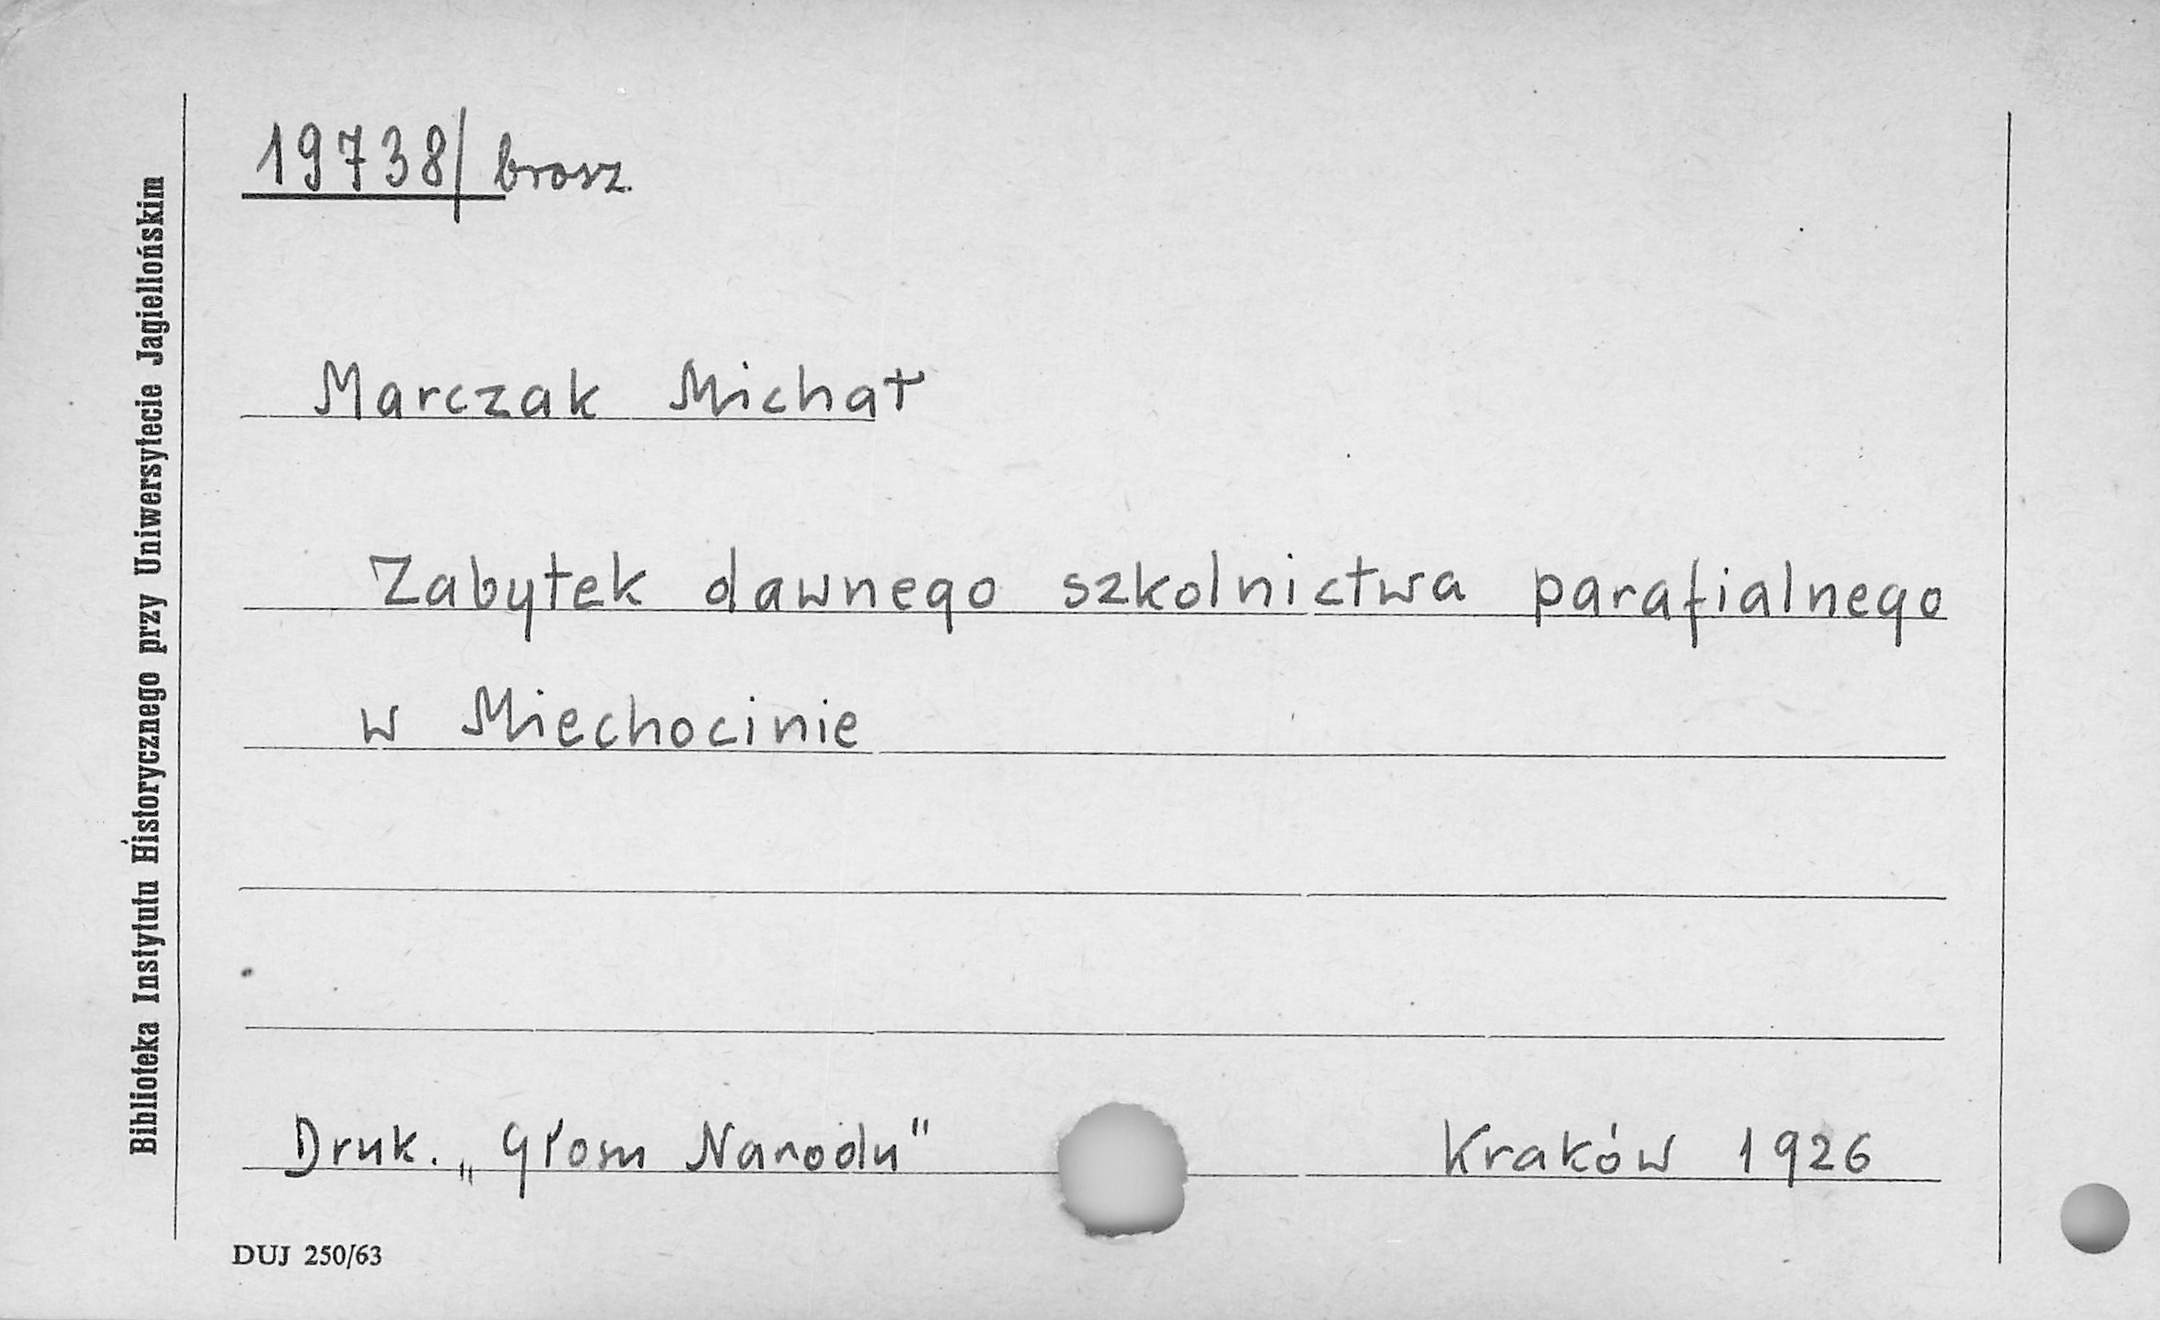 19738/ brosz.
Marczak Michał
Zabytek dawnego szkolnictwa parafialnego
w Miechocinie
Druk. „Głosu Narodu" Kraków 1926
DUJ 250/63
Biblioteka Instytutu Historycznego przy Uniwersytecie Jagiellońskim